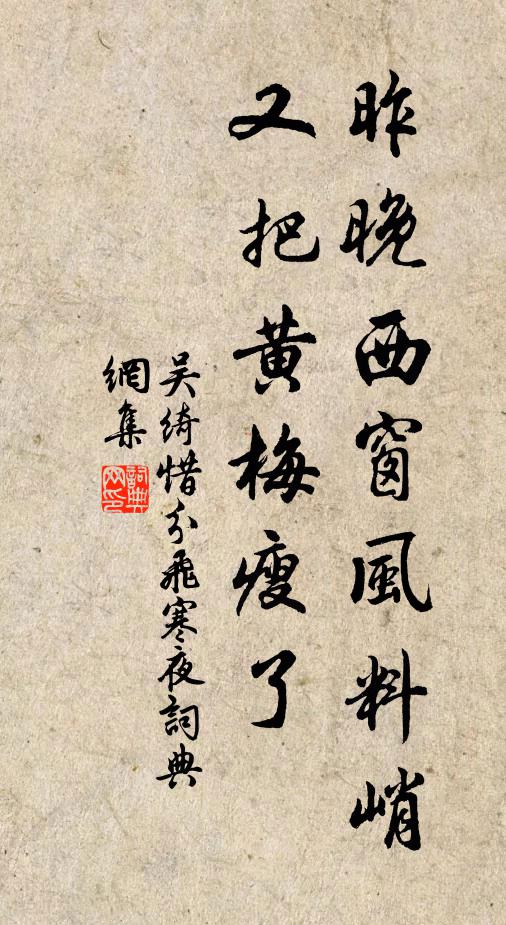 昨晚西窗風料峭
又把黃梅瘦了
吳綺惜分飛寒夜詞典
網集
詞典網印